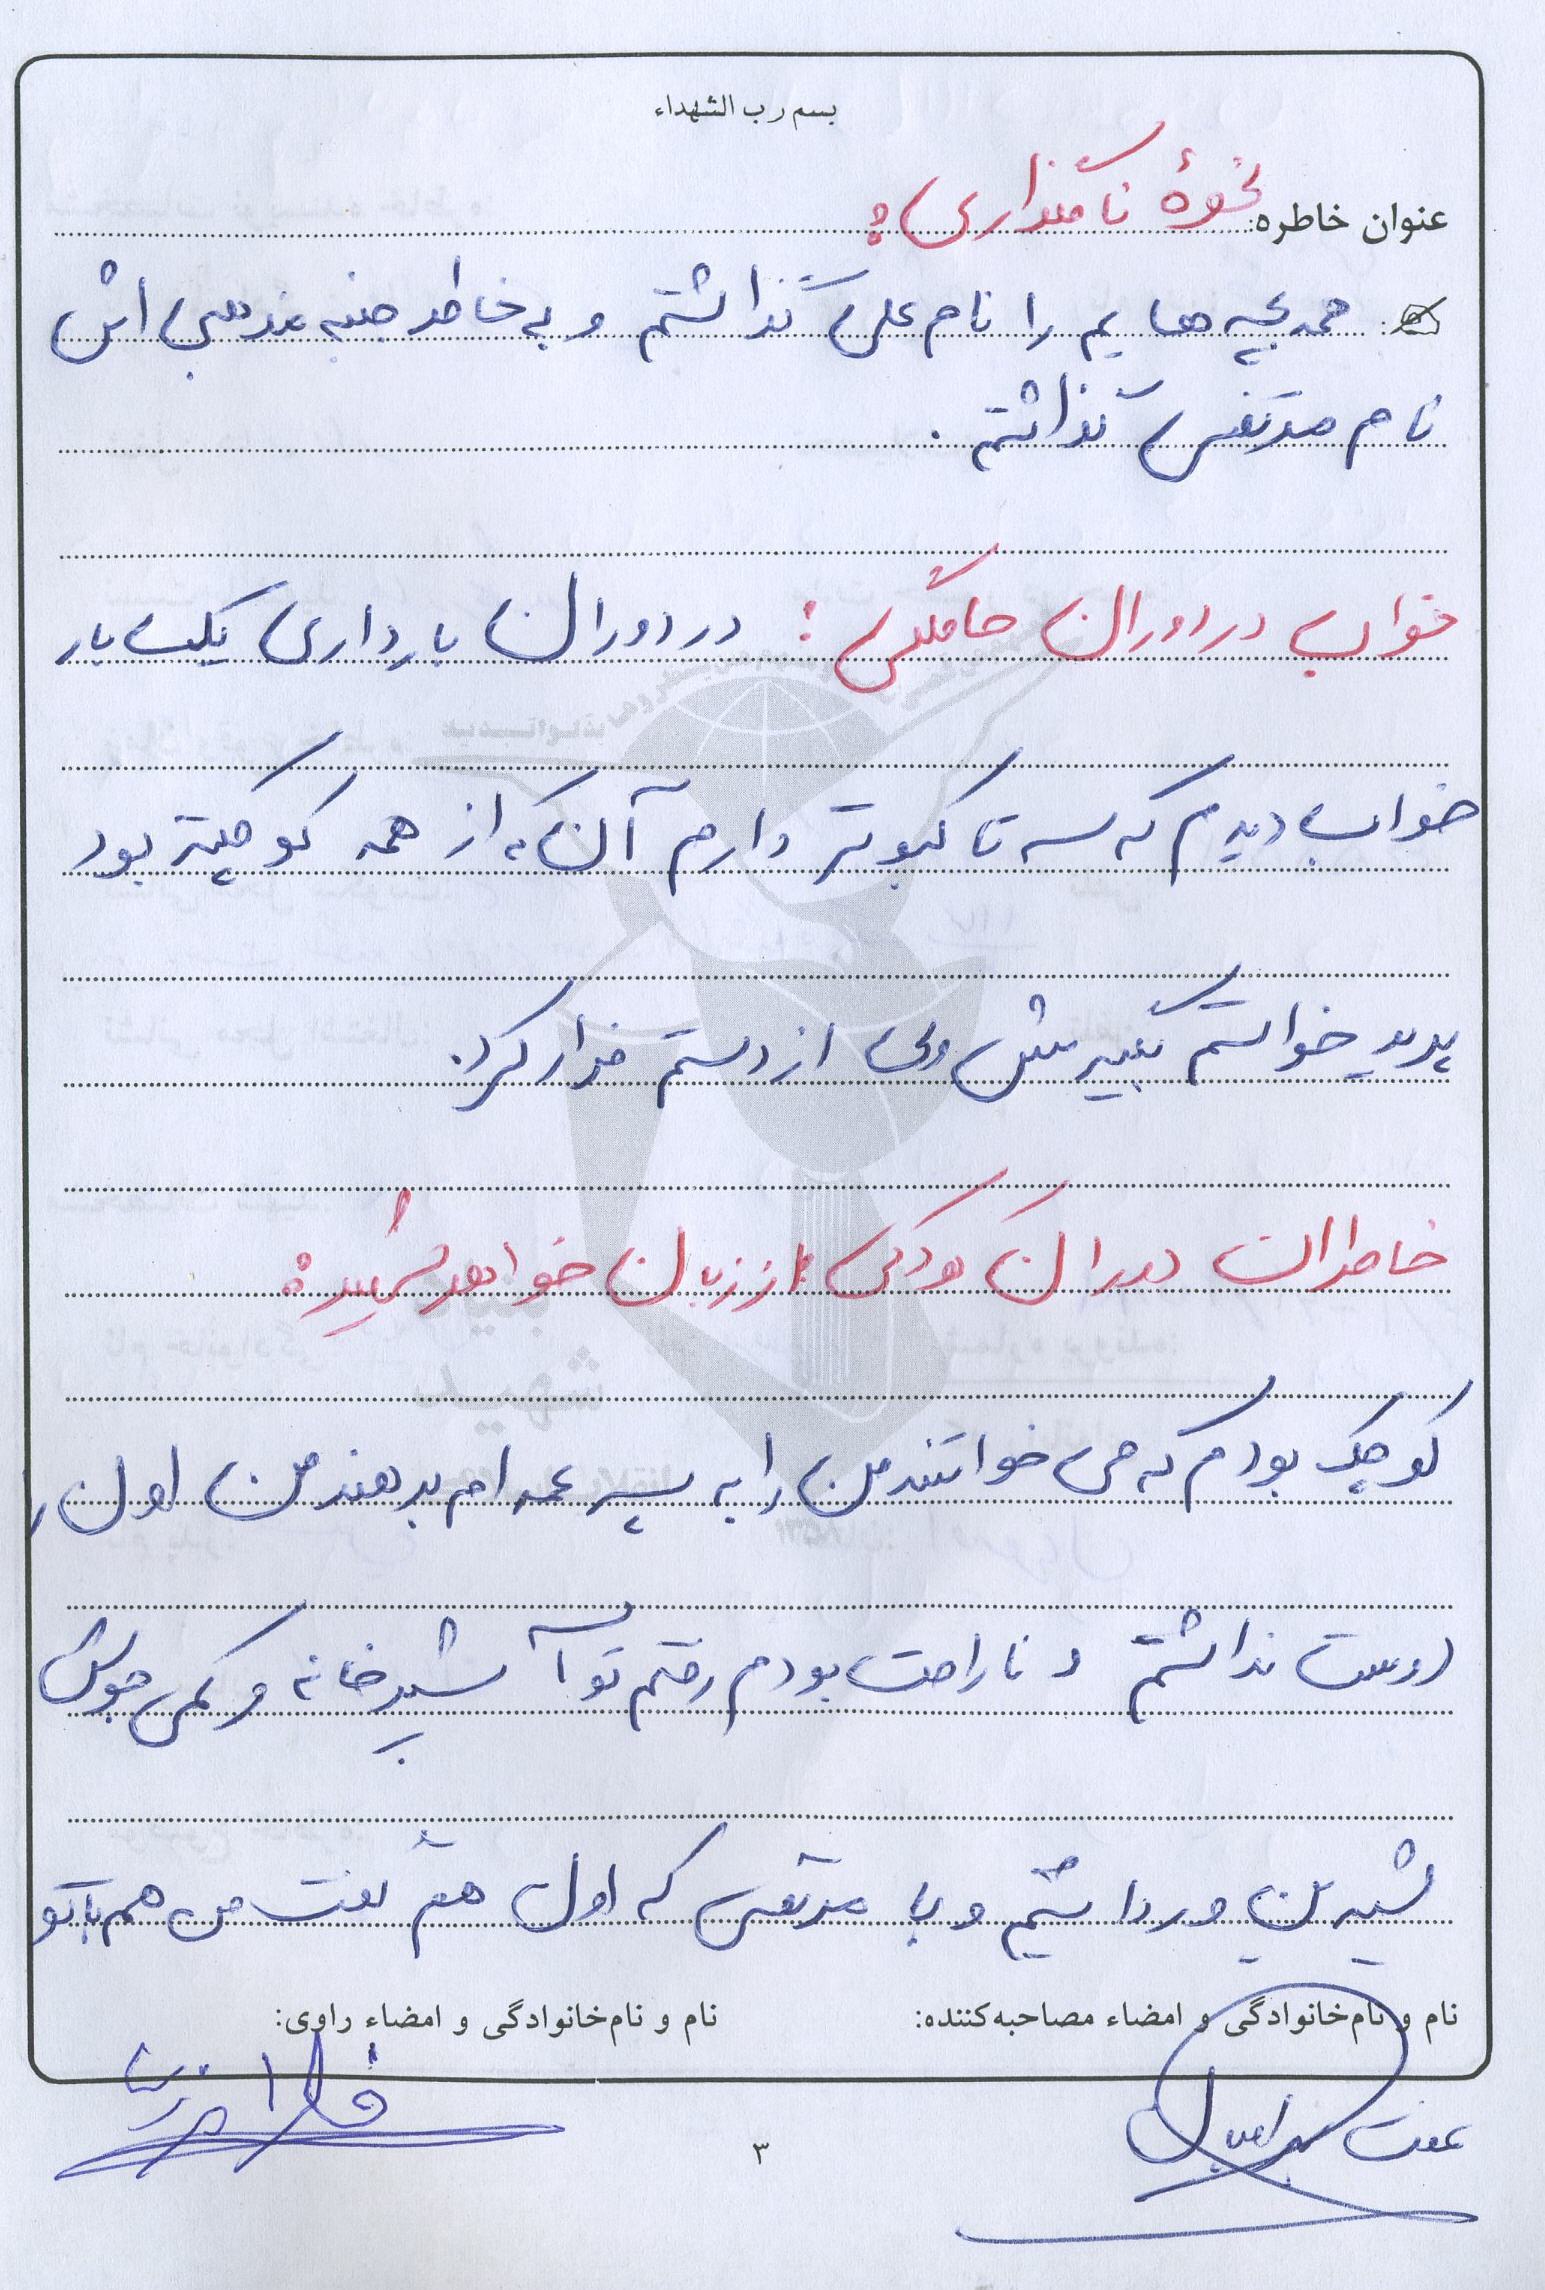 بسم رب الشهداء
عنوان خاطره: نحوهٔ نامگذاری:
همه بچه هایم را نام علی گذاشتم و به خاطر جنبه مذهبی اش
نام مرتضی گذاشتم.
خواب در دوران حاملگی: در دوران بارداری یک بار
خواب دیدم که سه تا کبوتر دارم آن که از همه کوچکتر بود
پرید خواستم بگیرمش ولی از دستم فرار کرد.
خاطرات دوران کودکی از زبان خواهر شهید:
کوچک بودم که می خواستند من را به پسر عمه ام بدهند من اول
دوست نداشتم و ناراحت بودم رفتم تو آشپزخانه و کمی
شیرین و با مرتضی که اول هفتم گفت من هم با تو
نام و نام‌خانوادگی و امضاء مصاحبه‌کننده:
نام و نام‌خانوادگی و امضاء راوی:
عفت
۳